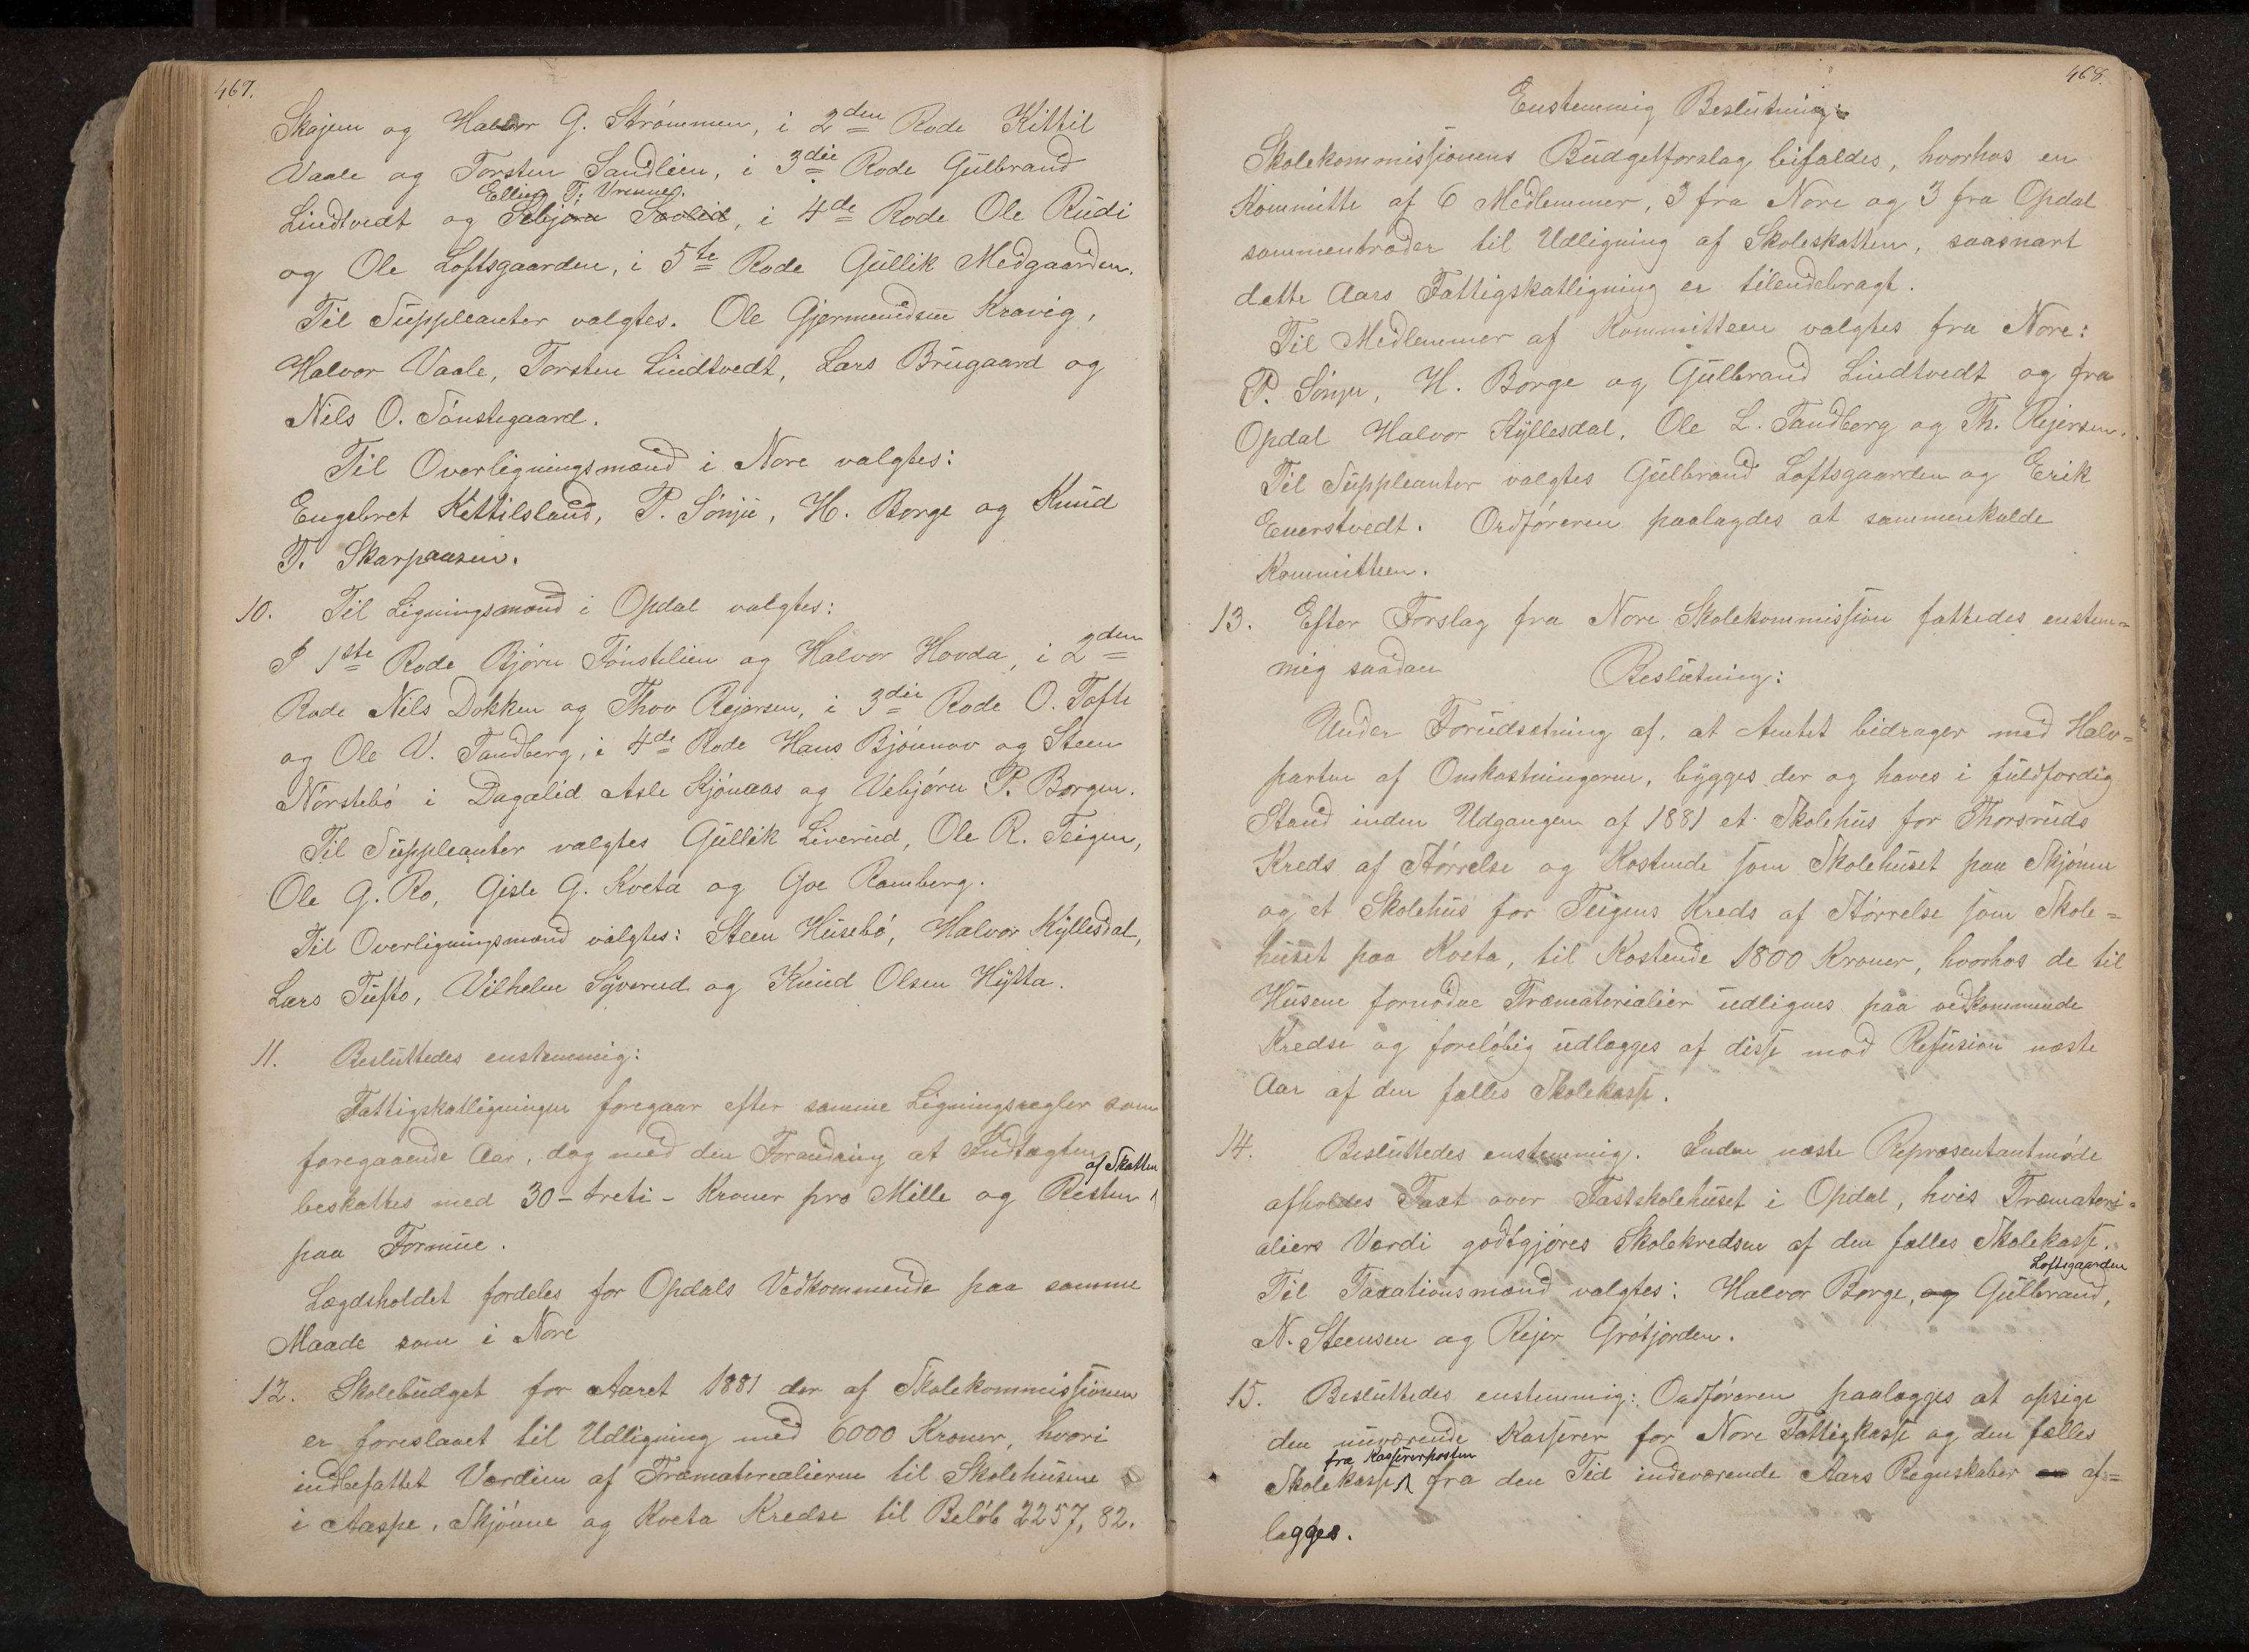 467.
Skajem og Halvor G. Strømmen, i 2den Rode Kittil
Vaale og Torsten Sandlien, i 3die Rode Gulbrand
Elling T. Vrenne.
Lindtvedt og Sebjørn Søvlid, i 4de Rode Ole Rudi
og Ole Loftsgaarden, i 5te Rode Gullik Medgaarden.
Til Suppleanter valgtes. Ole Gjermundsen Kravig,
Halvor Vaale, Torsten Lindtvedt, Lars Brugaard og
Nils O. Tønstegaard.
Til Overligningsmænd i Nore valgtes:
Engebret Kittilsland, P. Sønju, H. Borge og Knud
T. Skarpaasen.
10. Til Ligningsmænd i Opdal valgtes:
I 1ste Rode Bjørn Tønstelien og Halvor Hovda, i 2den
Rode Nils Dokken og Thov Rejersen, i 3die Rode O. Tofte
og Ole V. Tandberg, i 4de Rode Hans Bjønnov og Steen
Nørstebø i Dagalid Asle Kjønaas og Vebjørn P. Borgen.
Til Suppleanter valgtes Gullik Liverud, Ole R. Teigen,
Ole G. Ro, Gisle G. Kveta og Goe Ramberg.
Til Overligningsmænd valgtes: Steen Husebø, Halvor Kyllesdal,
Lars Tufto, Vilhelm Syverud og Knud Olsen Hytta.
11. Besluttedes enstemmig:
Fattigskatligningen foregaar efter samme Ligningsregler som
foregaaende Aar, dog med den Forandring at Indtægten
af Skatten
beskattes med 30 - treti - Kroner pro Mille og Resten
paa Formue.
Lægdsholdet fordeles for Opdals Vedkommende paa samme
Maade som i Nore
12. Skolebudget for Aaret 1881 der af Skolekommissionen
er foreslaaet til Udligning med 6000 Kroner, hvori
indbefattet Værdien af Træmaterealierne til Skolehusene
i Aaspe, Skjønne og Kveta Kredse til Beløb 2257,82.
468.
Enstemmig Beslutning:
Skolekommissionens Budgetforslag bifaldes, hvorhos en
Kommitte af 6 Medlemmer, 3 fra Nore og 3 fra Opdal
sammentræder til Udligning af Skoleskatten, saasnart
dette Aars Fattigskatligning er tilendebragt.
Til Medlemmer af Kommitteen valgtes fra Nore:
P. Sønju, H. Borge og Gulbrand Lindtvedt og fra
Opdal Halvor Kyllesdal, Ole L. Tandberg og Th. Rejersen.
Til Suppleanter valgtes Gulbrand Loftsgaarden og Erik
Enerstvedt. Ordføreren paalagdes at sammenkalde
Kommitteen.
13. Efter Forslag fra Nore Skolekommission fattedes enstem-
mig saadan Beslutning:
Under Forudsætning af, at Amtet bidrager med Halv=
parten af Omkostningerne, bygges der og haves i fuldfærdig
Stand inden Udgangen af 1881 et Skolehus for Thorsruds
Kreds af Størrelse og Kostende som Skolehuset paa Skjønne
og et Skolehus for Teigens Kreds af Størrelse som Skole=
huset paa Kveta, til Kostende 1800 Kroner, hvorhos de til
Husene fornødne Træmaterialier udlignes paa vedkommende
Kredse og foreløbig udlægges af disse mod Refusion næste
Aar af den fælles Skolekasse.
14. Besluttedes enstemmig. Inden næste Repræsentantmøde
afholdes Taxt over Fastskolehuset i Opdal, hvis Træmateri-
aliers Værdi godtgjøres Skolekredsen af den fælles Skolekasse.
Loftsgaarden
Til Taxationsmænd valgtes: Halvor Borge, og Gulbrand,
N. Steensen og Rejer Grøtjorden.
15. Besluttedes enstemmig: Ordføreren paalægges at opsige
den nuværende Kasserer for Nore Fattigkasse og den fælles
fra Kassererposten
Skolekasse fra den Tid indeværende Aars Regnskaber af=
lægges.